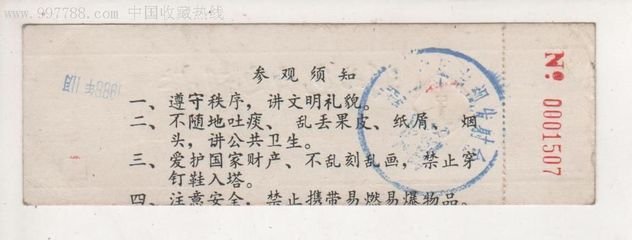 www.997788.com 中国收藏热线
参观须知
一、遵守秩序,讲文明礼貌。
二、不随地吐痰、乱丢果皮、纸屑、烟
头,讲公共卫生。
三、爱护国家财产、不乱刻乱画,禁止穿
钉鞋入塔。
四、注意安全,禁止携带易燃易爆物品。
№ 0001507